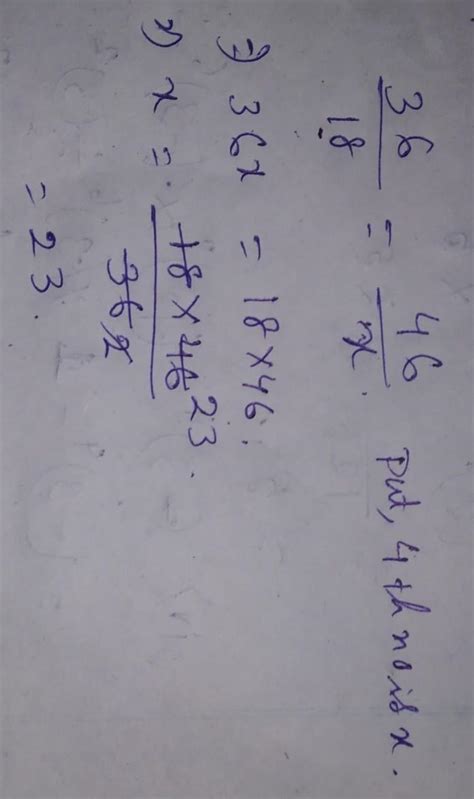 36/18 = 46/x. Put, 4th no is x.
⇒ 36x = 18×46.
⇒ x = 18×46 23 / 36 2
= 23.